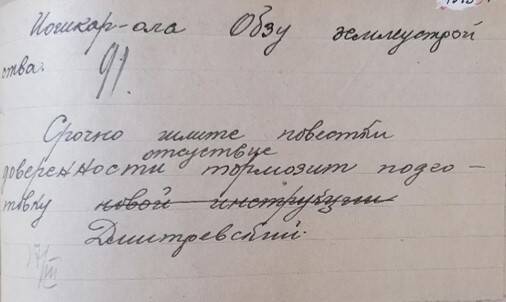 Иошкар-ола Обзу землеустрой
ства.
91.
Срочно шлите повестки
отсутствие
доверенности тормозит подго-
товку новой инструкции
Дмитревский.